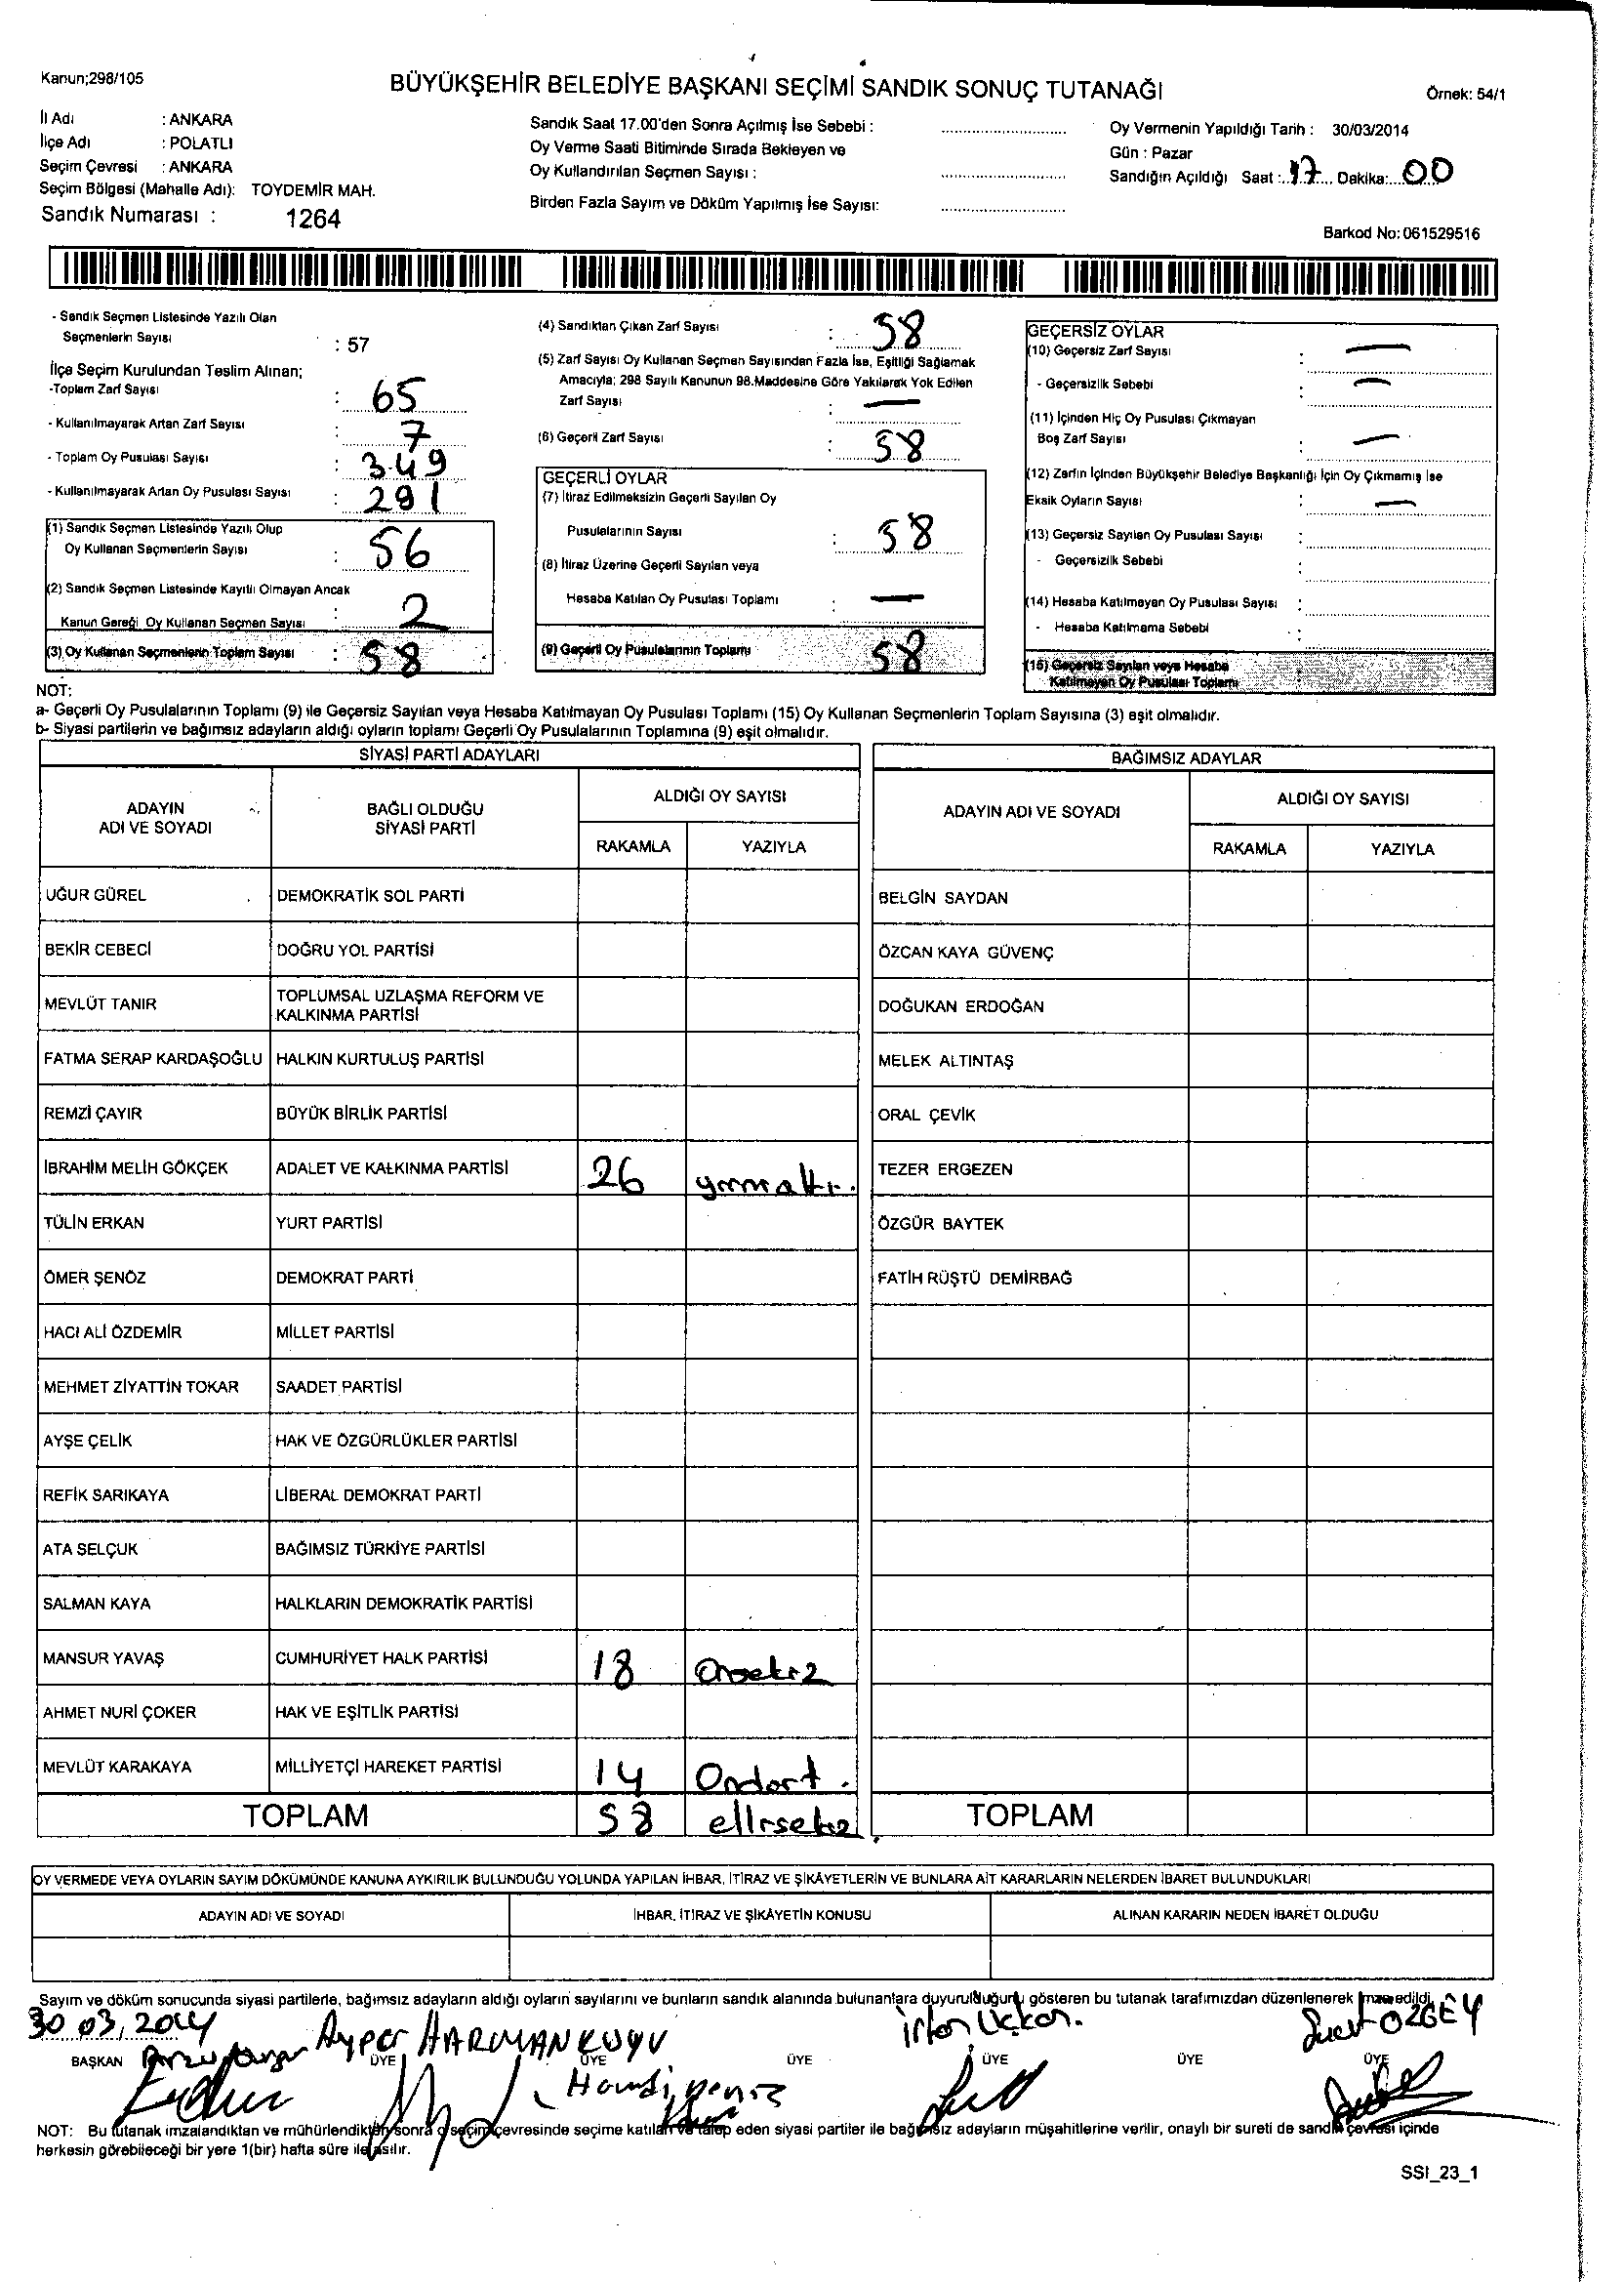 Kanun;298/105
BÜYÜKŞEHİR BELEDİYE BAŞKANI SEÇİMİ SANDIK SONUÇ TUTANAĞI
Örnek: 54/1
İl Adı : ANKARA
İlçe Adı : POLATLI
Seçim Çevresi : ANKARA
Seçim Bölgesi (Mahalle Adı): TOYDEMİR MAH.
Sandık Numarası : 1264
Sandık Saat 17.00'den Sonra Açılmış İse Sebebi :
Oy Verme Saati Bitiminde Sırada Bekleyen ve
Oy Kullandırılan Seçmen Sayısı :
Birden Fazla Sayım ve Döküm Yapılmış İse Sayısı:
Oy Vermenin Yapıldığı Tarih : 30/03/2014
Gün : Pazar
Sandığın Açıldığı Saat : 17 Dakika: 00
Barkod No: 061529516
- Sandık Seçmen Listesinde Yazılı Olan
Seçmenlerin Sayısı : 57
İlçe Seçim Kurulundan Teslim Alınan;
-Toplam Zarf Sayısı : 65
- Kullanılmayarak Artan Zarf Sayısı : 7
- Toplam Oy Pusulası Sayısı : 349
- Kullanılmayarak Artan Oy Pusulası Sayısı : 291
(1) Sandık Seçmen Listesinde Yazılı Olup
Oy Kullanan Seçmenlerin Sayısı : 56
(2) Sandık Seçmen Listesinde Kayıtlı Olmayan Ancak
Kanun Gereği Oy Kullanan Seçmen Sayısı : 2
(3) Oy Kullanan Seçmenlerin Toplam Sayısı : 58
(4) Sandıktan Çıkan Zarf Sayısı : 58
(5) Zarf Sayısı Oy Kullanan Seçmen Sayısından Fazla İse, Eşitliği Sağlamak
Amacıyla; 298 Sayılı Kanunun 98.Maddesine Göre Yakılarak Yok Edilen
Zarf Sayısı : —
(6) Geçerli Zarf Sayısı : 58
GEÇERLİ OYLAR
(7) İtiraz Edilmeksizin Geçerli Sayılan Oy
Pusulalarının Sayısı : 58
(8) İtiraz Üzerine Geçerli Sayılan veya
Hesaba Katılan Oy Pusulası Toplamı : —
(9) Geçerli Oy Pusulalarının Toplamı 58
GEÇERSİZ OYLAR
(10) Geçersiz Zarf Sayısı : —
- Geçersizlik Sebebi : —
(11) İçinden Hiç Oy Pusulası Çıkmayan
Boş Zarf Sayısı : —
(12) Zarfın İçinden Büyükşehir Belediye Başkanlığı İçin Oy Çıkmamış İse
Eksik Oyların Sayısı : —
(13) Geçersiz Sayılan Oy Pusulası Sayısı :
- Geçersizlik Sebebi :
(14) Hesaba Katılmayan Oy Pusulası Sayısı :
- Hesaba Katılmama Sebebi :
(15) Geçersiz Sayılan veya Hesaba
Katılmayan Oy Pusulası Toplamı :
NOT:
a- Geçerli Oy Pusulalarının Toplamı (9) ile Geçersiz Sayılan veya Hesaba Katılmayan Oy Pusulası Toplamı (15) Oy Kullanan Seçmenlerin Toplam Sayısına (3) eşit olmalıdır.
b- Siyasi partilerin ve bağımsız adayların aldığı oyların toplamı Geçerli Oy Pusulalarının Toplamına (9) eşit olmalıdır.
SİYASİ PARTİ ADAYLARI
ADAYIN ADI VE SOYADI BAĞLI OLDUĞU SİYASİ PARTİ ALDIĞI OY SAYISI
RAKAMLA YAZIYLA
UĞUR GÜREL DEMOKRATİK SOL PARTİ
BEKİR CEBECİ DOĞRU YOL PARTİSİ
MEVLÜT TANIR TOPLUMSAL UZLAŞMA REFORM VE KALKINMA PARTİSİ
FATMA SERAP KARDAŞOĞLU HALKIN KURTULUŞ PARTİSİ
REMZİ ÇAYIR BÜYÜK BİRLİK PARTİSİ
İBRAHİM MELİH GÖKÇEK ADALET VE KALKINMA PARTİSİ 26 yirmialtı.
TÜLİN ERKAN YURT PARTİSİ
ÖMER ŞENÖZ DEMOKRAT PARTİ
HACI ALİ ÖZDEMİR MİLLET PARTİSİ
MEHMET ZİYATTİN TOKAR SAADET PARTİSİ
AYŞE ÇELİK HAK VE ÖZGÜRLÜKLER PARTİSİ
REFİK SARIKAYA LİBERAL DEMOKRAT PARTİ
ATA SELÇUK BAĞIMSIZ TÜRKİYE PARTİSİ
SALMAN KAYA HALKLARIN DEMOKRATİK PARTİSİ
MANSUR YAVAŞ CUMHURİYET HALK PARTİSİ 18 Onsekiz
AHMET NURİ ÇOKER HAK VE EŞİTLİK PARTİSİ
MEVLÜT KARAKAYA MİLLİYETÇİ HAREKET PARTİSİ 14 Ondort.
TOPLAM 58 ellisekiz
BAĞIMSIZ ADAYLAR
ADAYIN ADI VE SOYADI ALDIĞI OY SAYISI
RAKAMLA YAZIYLA
BELGİN SAYDAN
ÖZCAN KAYA GÜVENÇ
DOĞUKAN ERDOĞAN
MELEK ALTINTAŞ
ORAL ÇEVİK
TEZER ERGEZEN
ÖZGÜR BAYTEK
FATİH RÜŞTÜ DEMİRBAĞ
TOPLAM
OY VERMEDE VEYA OYLARIN SAYIM DÖKÜMÜNDE KANUNA AYKIRILIK BULUNDUĞU YOLUNDA YAPILAN İHBAR, İTİRAZ VE ŞİKÂYETLERİN VE BUNLARA AİT KARARLARIN NELERDEN İBARET BULUNDUKLARI
ADAYIN ADI VE SOYADI İHBAR, İTİRAZ VE ŞİKÂYETİN KONUSU ALINAN KARARIN NEDEN İBARET OLDUĞU
Sayım ve döküm sonucunda siyasi partilerle, bağımsız adayların aldığı oyların sayılarını ve bunların sandık alanında bulunanlara duyurulduğunu gösteren bu tutanak tarafımızdan düzenlenerek imza edildi.
30 03, 2014 Ayper HARMANKUYU Suat ÖZBEY
BAŞKAN ÜYE ÜYE ÜYE ÜYE ÜYE ÜYE
Hamdi
NOT: Bu tutanak imzalandıktan ve mühürlendikten sonra o seçim çevresinde seçime katılan ve talep eden siyasi partiler ile bağımsız adayların müşahitlerine verilir, onaylı bir sureti de sandık çevresi içinde
herkesin görebileceği bir yere 1(bir) hafta süre ile asılır.
SSI_23_1